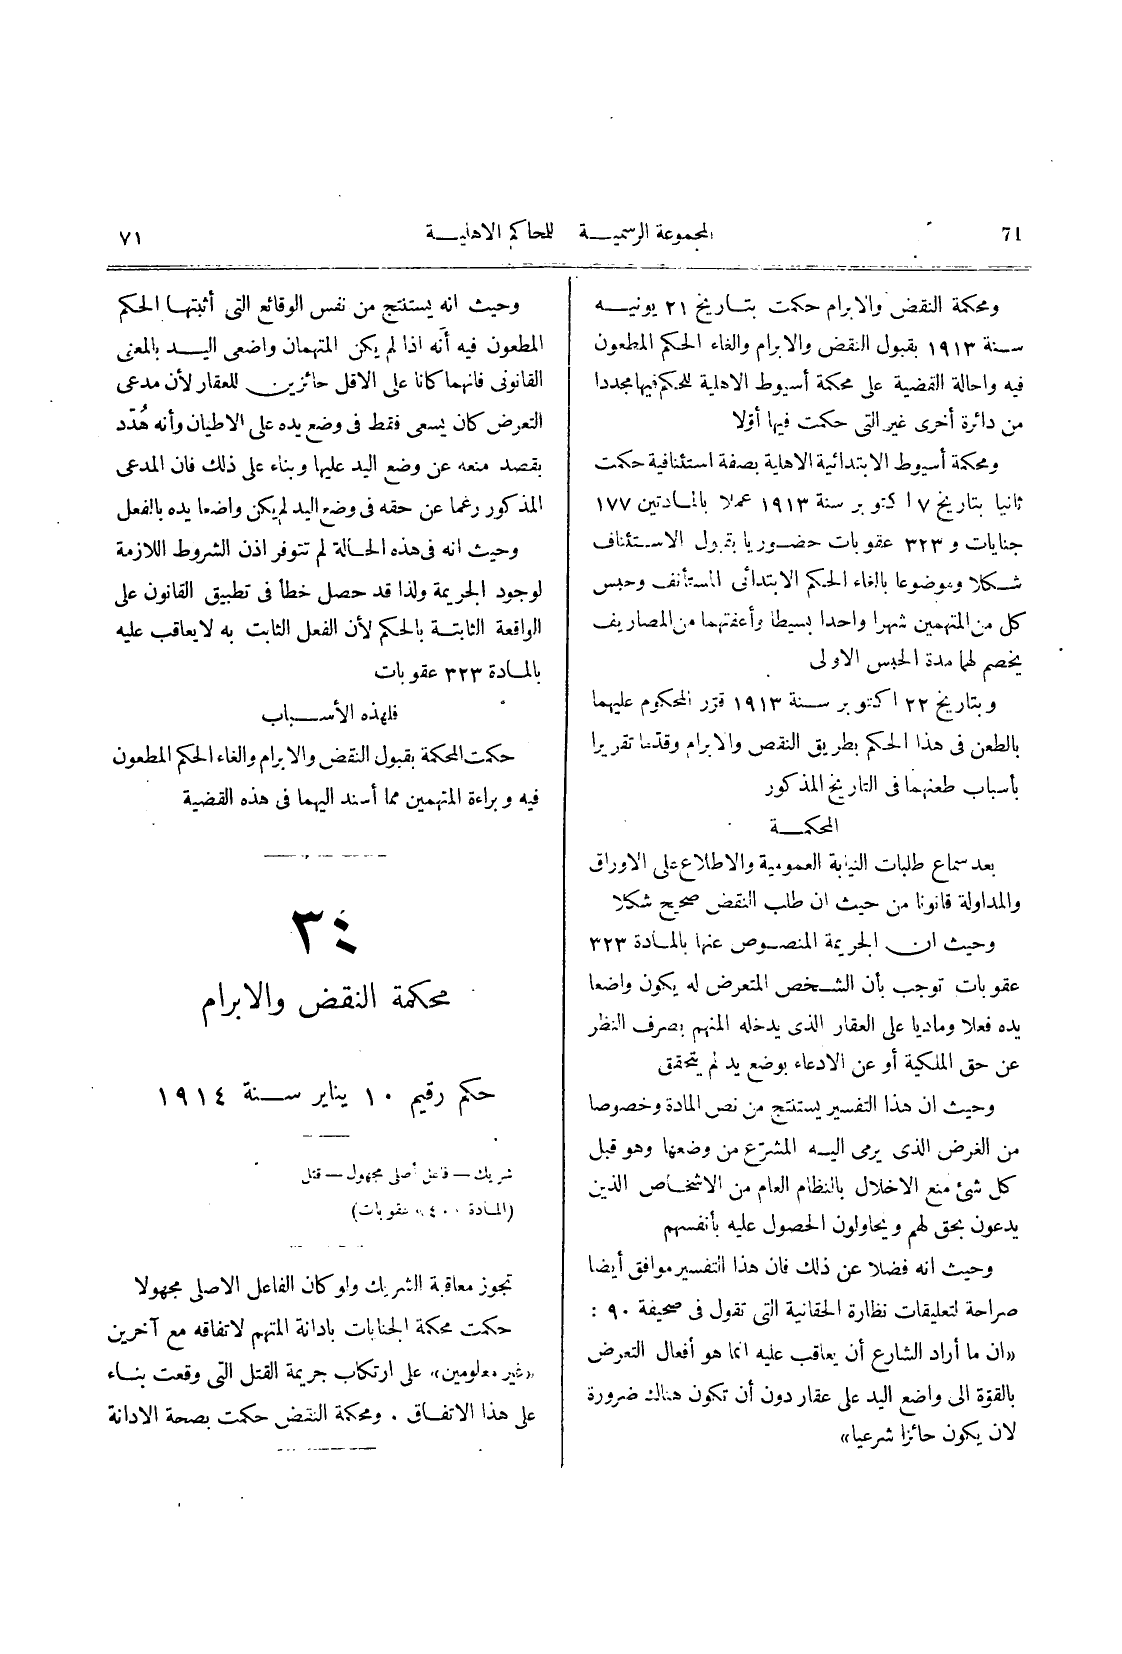 71
المجموعة الرسمية للمحاكم الاهلية
٧١
ومحكمة النقض والابرام حكمت بتاريخ ٢١ يونيه
سنة ١٩١٣ بقبول النقض والابرام والغاء الحكم المطعون
فيه واحالة القضية على محكمة أسيوط الاهلية للحكم فيها مجددا
من دائرة أخرى غير التى حكمت فيها أوّلا
ومحكمة أسيوط الابتدائية الاهلية بصفة استئنافية حكمت
ثانيا بتاريخ ٧ اكتوبر سنة ١٩١٣ عملا بالمادتين ١٧٧
جنايات و ٣٢٣ عقوبات حضوريا بقبول الاستئناف
شكلا وموضوعا بالغاء الحكم الابتدائى المستأنف وحبس
كل من المتهمين شهرا واحدا بسيطا وأعفتهما من المصاريف
يخصم لهما مدة الحبس الاولى
وبتاريخ ٢٢ اكتوبر سنة ١٩١٣ قرّر المحكوم عليهما
بالطعن فى هذا الحكم بطريق النقض والابرام وقدّما تقريرا
بأسباب طعنهما فى التاريخ المذكور
المحكمة
بعد سماع طلبات النيابة العمومية والاطلاع على الاوراق
والمداولة قانونا من حيث ان طلب النقض صحيح شكلا
وحيث ان الجريمة المنصوص عنها بالمادة ٣٢٣
عقوبات توجب بأن الشخص المتعرض له يكون واضعا
يده فعلا وماديا على العقار الذى يدخله المتهم بصرف النظر
عن حق الملكية أو عن الادعاء بوضع يد لم يتحقق
وحيث ان هذا التفسير يستنتج من نص المادة وخصوصا
من الغرض الذى يرمى اليه المشرّع من وضعها وهو قبل
كل شئ منع الاخلال بالنظام العام من الاشخاص الذين
يدعون بحق لهم ويحاولون الحصول عليه بأنفسهم
وحيث انه فضلا عن ذلك فان هذا التفسير موافق أيضا
صراحة لتعليقات نظارة الحقانية التى تقول فى صحيفة ٩٠ :
«ان ما أراد الشارع أن يعاقب عليه انما هو أفعال التعرض
بالقوّة الى واضع اليد على عقار دون أن تكون هناك ضرورة
لان يكون حائزا شرعيا»
وحيث انه يستنتج من نفس الوقائع التى أثبتها الحكم
المطعون فيه أنه اذا لم يكن المتهمان واضعى اليد بالمعنى
القانونى فانهما كانا على الاقل حائزين للعقار لأن مدعى
التعرض كان يسعى فقط فى وضع يده على الاطيان وأنه هُدّد
بقصد منعه عن وضع اليد عليها وبناء على ذلك فان المدعى
المذكور رغما عن حقه فى وضع اليد لم يكن واضعا يده بالفعل
وحيث انه فى هذه الحالة لم تتوفر اذن الشروط اللازمة
لوجود الجريمة ولذا قد حصل خطأ فى تطبيق القانون على
الواقعة الثابتة بالحكم لأن الفعل الثابت به لا يعاقب عليه
بالمادة ٣٢٣ عقوبات
فلهذه الأسباب
حكمت المحكمة بقبول النقض والابرام والغاء الحكم المطعون
فيه وبراءة المتهمين مما أسند اليهما فى هذه القضية
٣٤
محكمة النقض والابرام
حكم رقيم ١٠ يناير سنة ١٩١٤
شريك — فاعل أصلى مجهول — قتل
(المادة عقوبات)
تجوز معاقبة الشريك ولو كان الفاعل الاصلى مجهولا
حكمت محكمة الجنايات بادانة المتهم لاتفاقه مع آخرين
«غير معلومين» على ارتكاب جريمة القتل التى وقعت بناء
على هذا الاتفاق . ومحكمة النقض حكمت بصحة الادانة